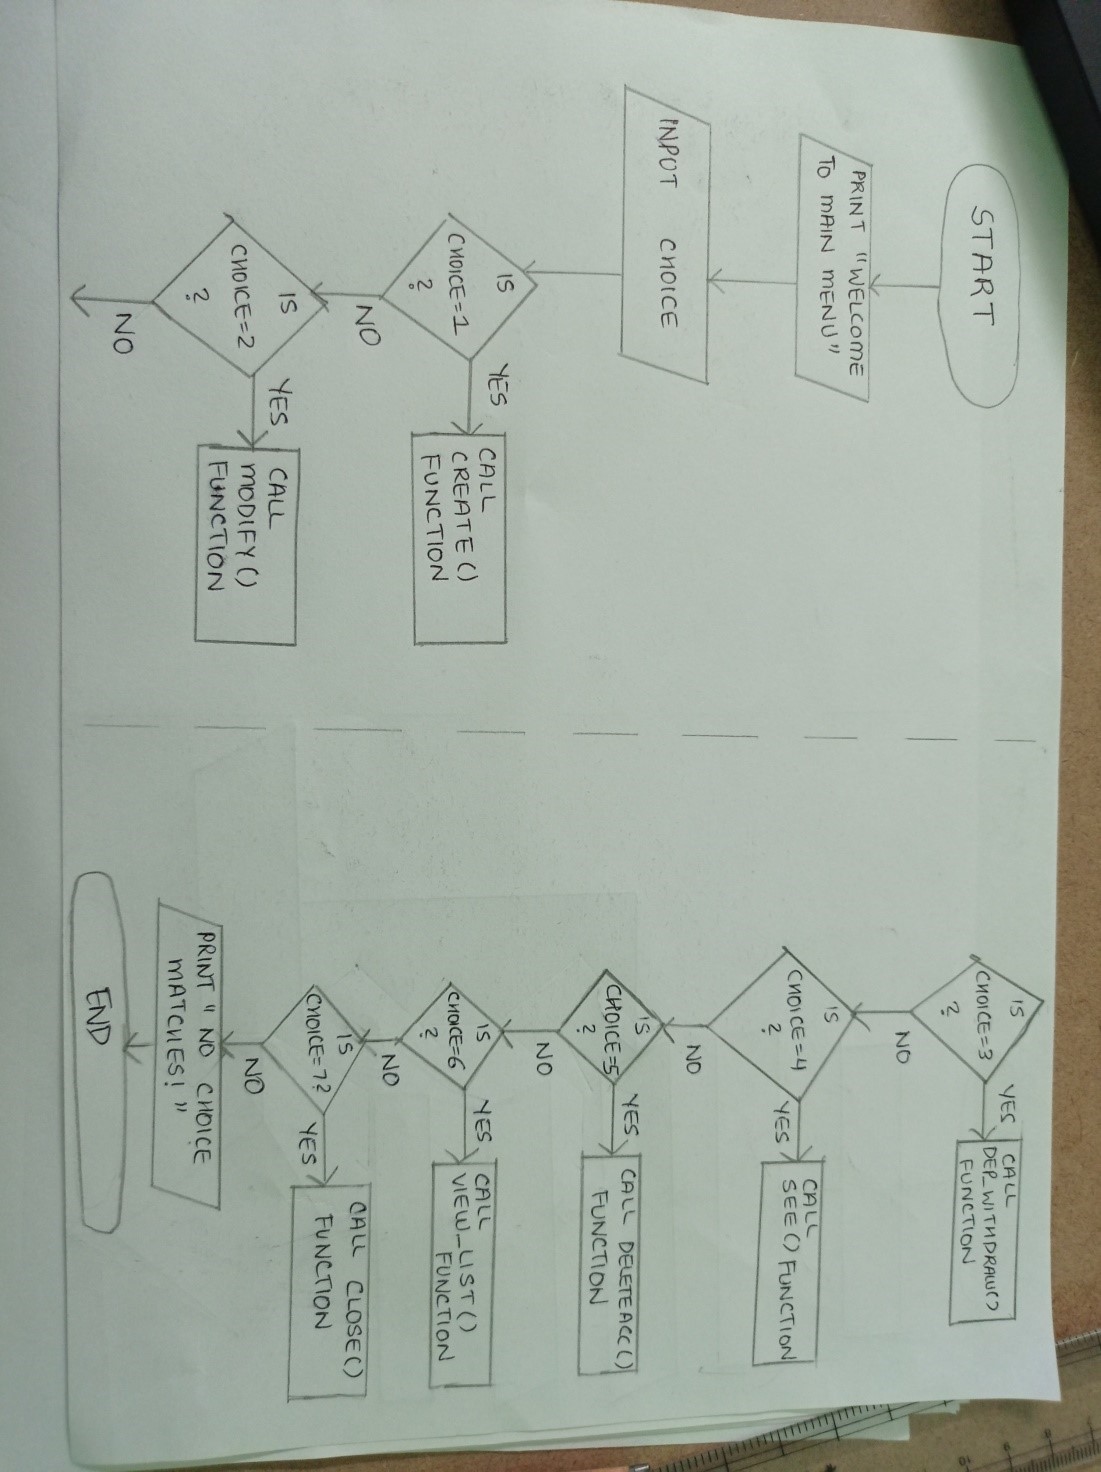 START
PRINT "WELCOME
TO MAIN MENU"
INPUT CHOICE
IS
CHOICE=1
?
YES
CALL
CREATE()
FUNCTION
NO
IS
CHOICE=2
?
YES
CALL
MODIFY()
FUNCTION
NO
IS
CHOICE=3
?
YES
CALL
DEP_WITHDRAW()
FUNCTION
NO
IS
CHOICE=4
?
YES
CALL
SEE() FUNCTION
NO
IS
CHOICE=5
?
YES
CALL DELETEACC()
FUNCTION
NO
IS
CHOICE=6
?
YES
CALL
VIEW_LIST()
FUNCTION
NO
IS
CHOICE=7?
YES
CALL CLOSE()
FUNCTION
NO
PRINT " NO CHOICE
MATCHES! "
END